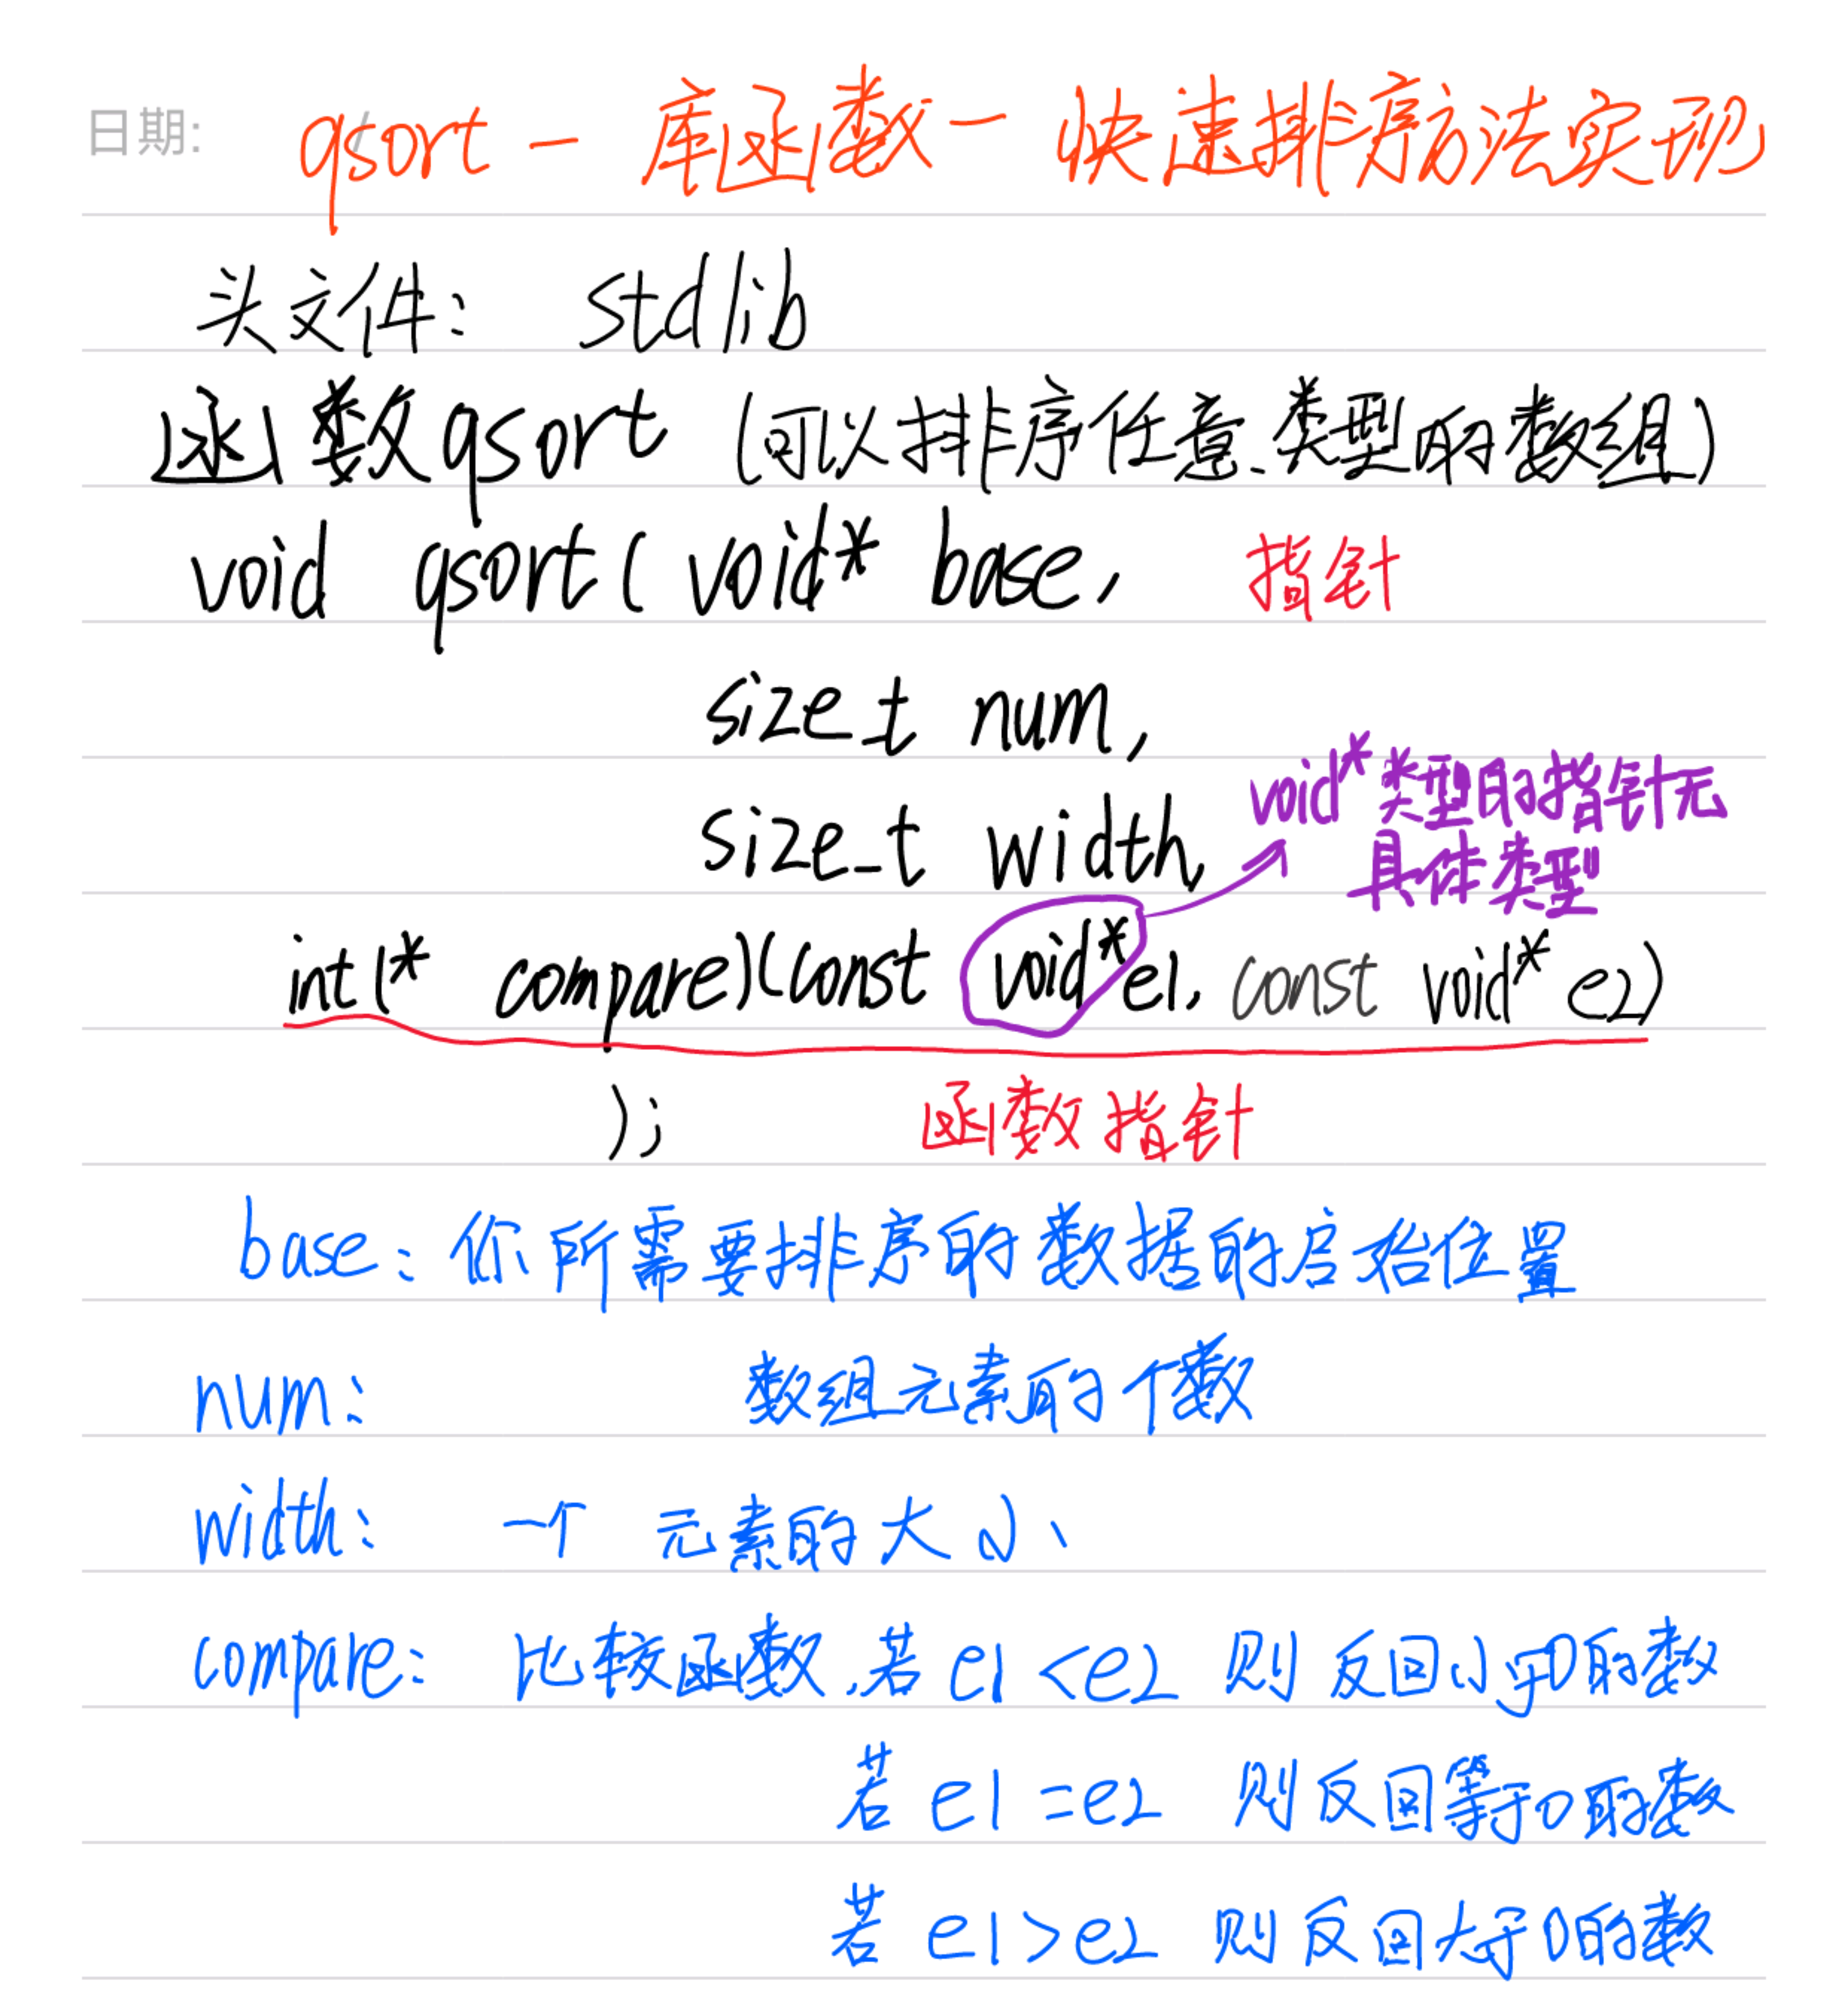 日期: qsort — 库函数 — 快速排序方法实现
头文件: stdlib
函数qsort (可以排序任意类型的数组)
void qsort( void* base, 指针
size_t num,
size_t width,
void*类型的指针无
具体类型
int(* compare)(const void* e1, const void* e2)
); 函数指针
base: 你所需要排序的数据的启始位置
num: 数组元素的个数
width: 一个 元素的大小
compare: 比较函数,若 e1 < e2 则反回小于0的数
若 e1 = e2 则反回等于0的数
若 e1 > e2 则反回大于0的数